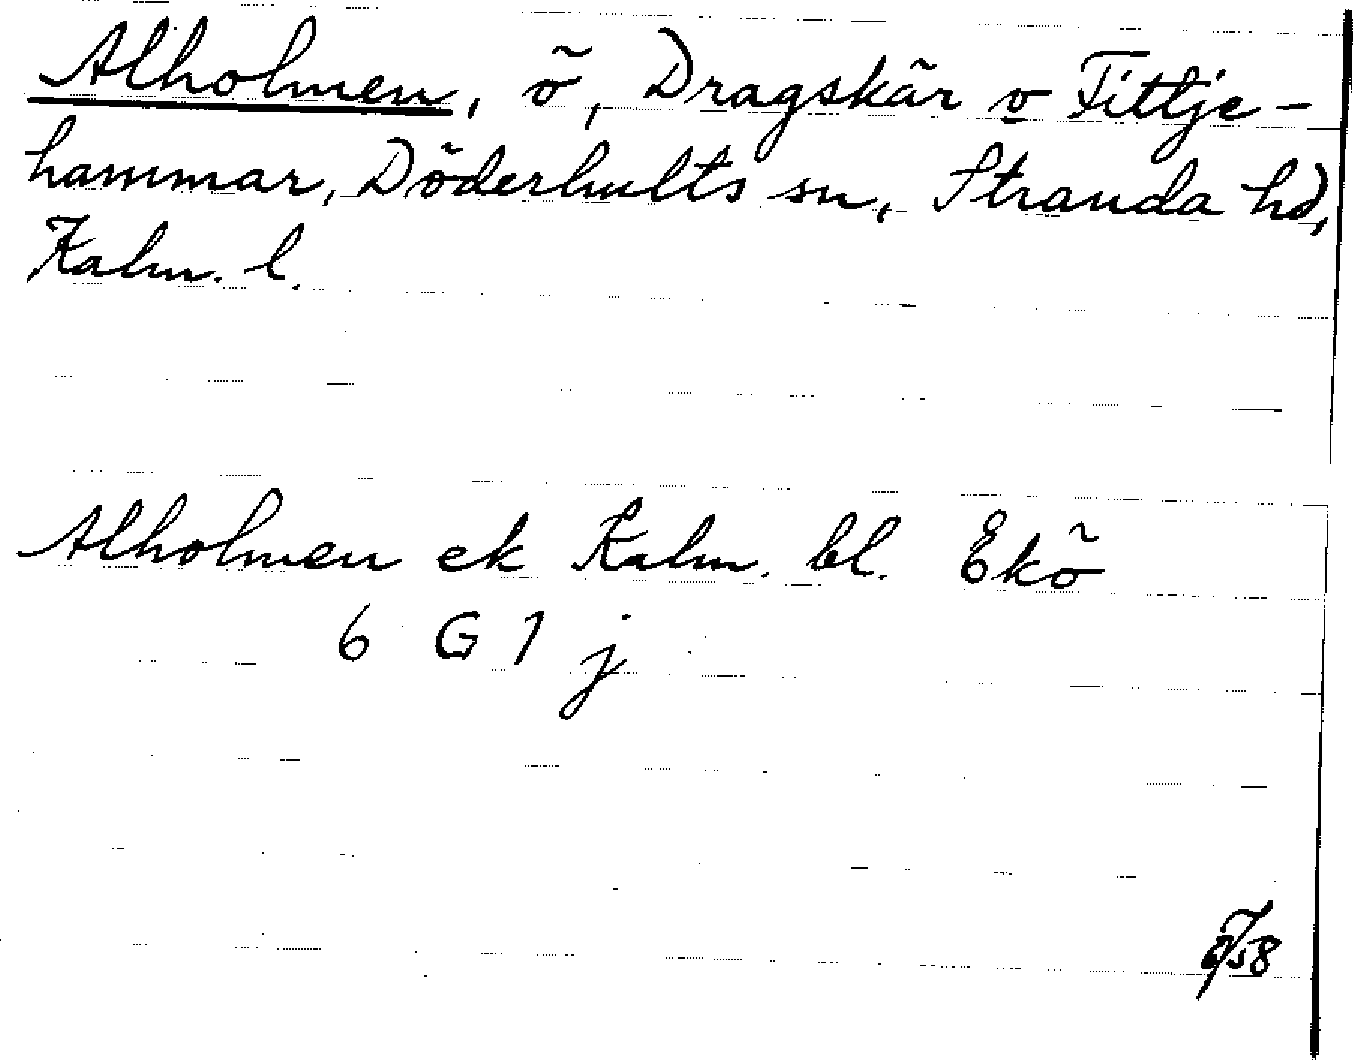 Alholmen, ö, Dragskär o Tittje-
hammar, Döderhults sn, Stranda hd,
Kalm. l.
Alholmen ek Kalm. bl. Ekö
6 G 1 j